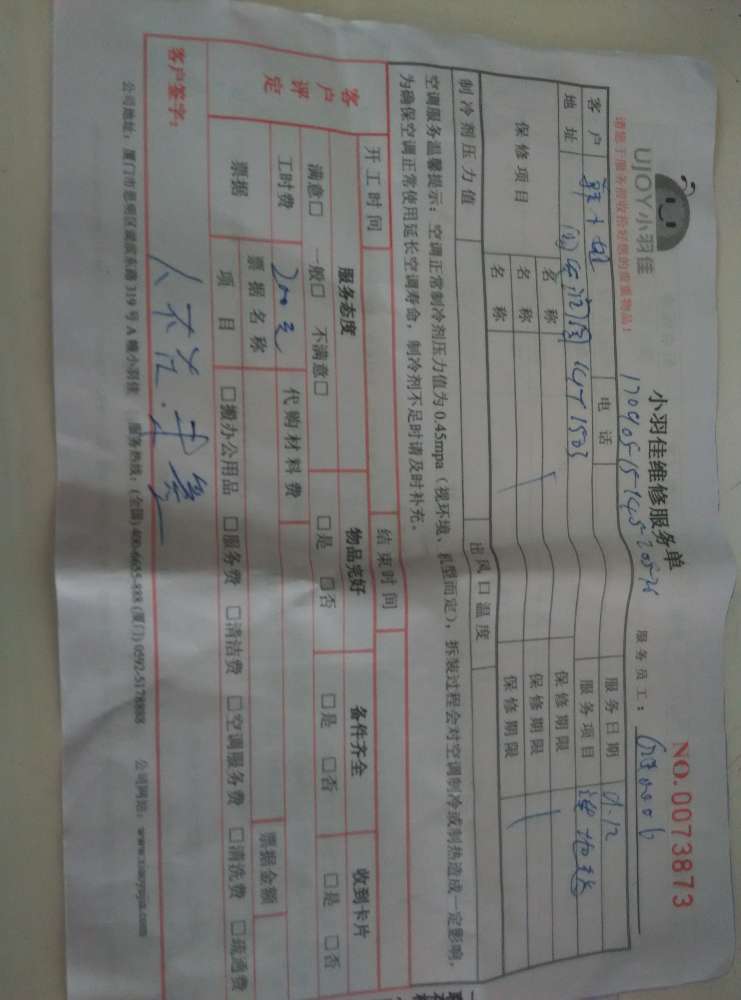 UJOY小羽佳
小羽佳维修服务单
NO.0073873
请您于服务前收拾好您的贵重物品!
服务员工:
客户
电话
服务日期 9.12
地址
1503
服务项目
保修项目
名称
保修期限
名称
保修期限
名称
保修期限
制冷剂压力值
出风口温度
空调服务温馨提示:空调正常制冷剂压力值为0.45mpa(视环境、机型而定),拆装过程会对空调制冷或制热造成一定影响,
为确保空调正常使用延长空调寿命,制冷剂不足时请及时补充。
开工时间
结束时间
客户评定
服务态度
物品完好
备件齐全
收到卡片
满意□ 一般□ 不满意□
□是 □否
□是 □否
□是 □否
工时费 200元
代购材料费
票据
票据名称
票据金额
项目
□搬办公用品 □服务费 □清洁费 □空调服务费 □清洗费 □疏通费
客户签字:
公司地址:厦门市思明区湖滨东路319号A幢小羽佳 服务热线:(全国)400-6655-888 (厦门)0592-5178888 公司网站:www.xiaoyujia.com